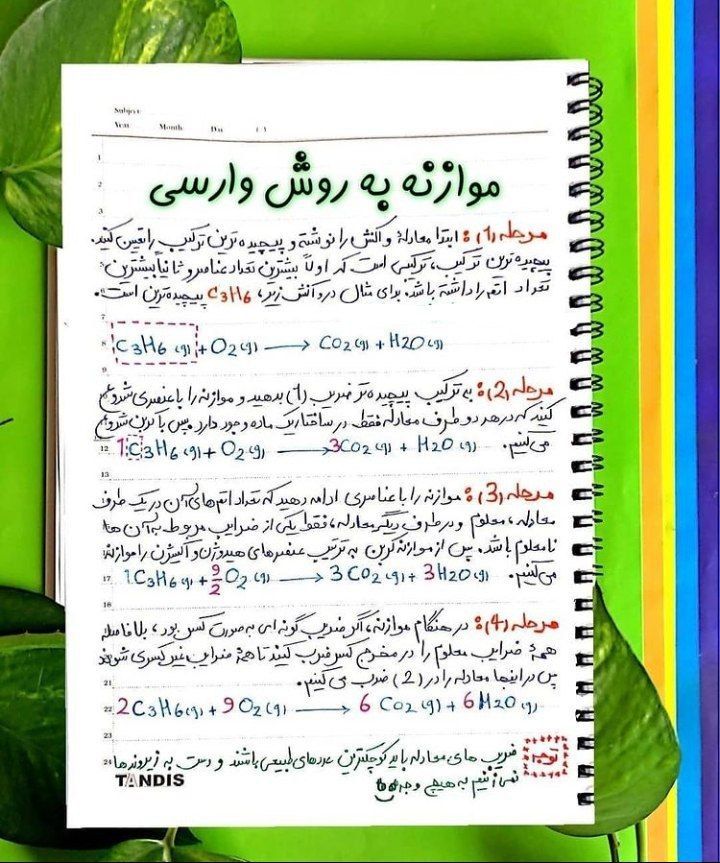 Subject:
Year. Month. Day. ( )
موازنه به روش وارسی
مرحله (۱): ابتدا معادلهٔ واکنش را نوشته و پیچیده ترین ترکیب را تعین کنید.
پیچیده ترین ترکیب، ترکیبی است که اولاً بیشترین تعداد عناصر و ثانیاً بیشترین
تعداد اتم را داشته باشد. برای مثال در واکنش زیر، C3H6 پیچیده‌ترین است.
C3H6 (g) + O2 (g) ⟶ CO2 (g) + H2O (g)
مرحله (2): به ترکیب پیچیده‌تر ضریب (1) بدهید و موازنه را با عنصری شروع
کنید که در هر دو طرف معادله فقط در ساختار یک ماده وجود دارد. پس با کربن شروع
می‌کنیم. 1C3H6 (g) + O2 (g) ⟶ 3CO2 (g) + H2O (g)
مرحله (3): موازنه را با عناصری ادامه دهید که تعداد اتم‌های آن در یک طرف
معادله، معلوم و در طرف دیگر معادله، فقط یکی از ضرایب مربوط به آن ها
نامعلوم باشد. پس از موازنه کربن به ترتیب عنصرهای هیدروژن و اکسیژن را موازنه
می‌کنیم. 1C3H6 (g) + 9/2 O2 (g) ⟶ 3CO2 (g) + 3H2O (g)
مرحله (4): در هنگام موازنه، اگر ضریب گونه ای به صورت کسر بود، بلافاصله
همهٔ ضرایب معلوم را در مخرج کسر ضرب کنید تا همهٔ ضرایب غیر کسری شوند
پس در اینجا معادله را در (2) ضرب می کنیم.
2C3H6 (g) + 9O2 (g) ⟶ 6CO2 (g) + 6H2O (g)
توجه: ضریب های معادله باید کوچکترین عددهای طبیعی باشند و دست به زیروندها
نمی‌زنیم به هیچ وجه
TANDIS